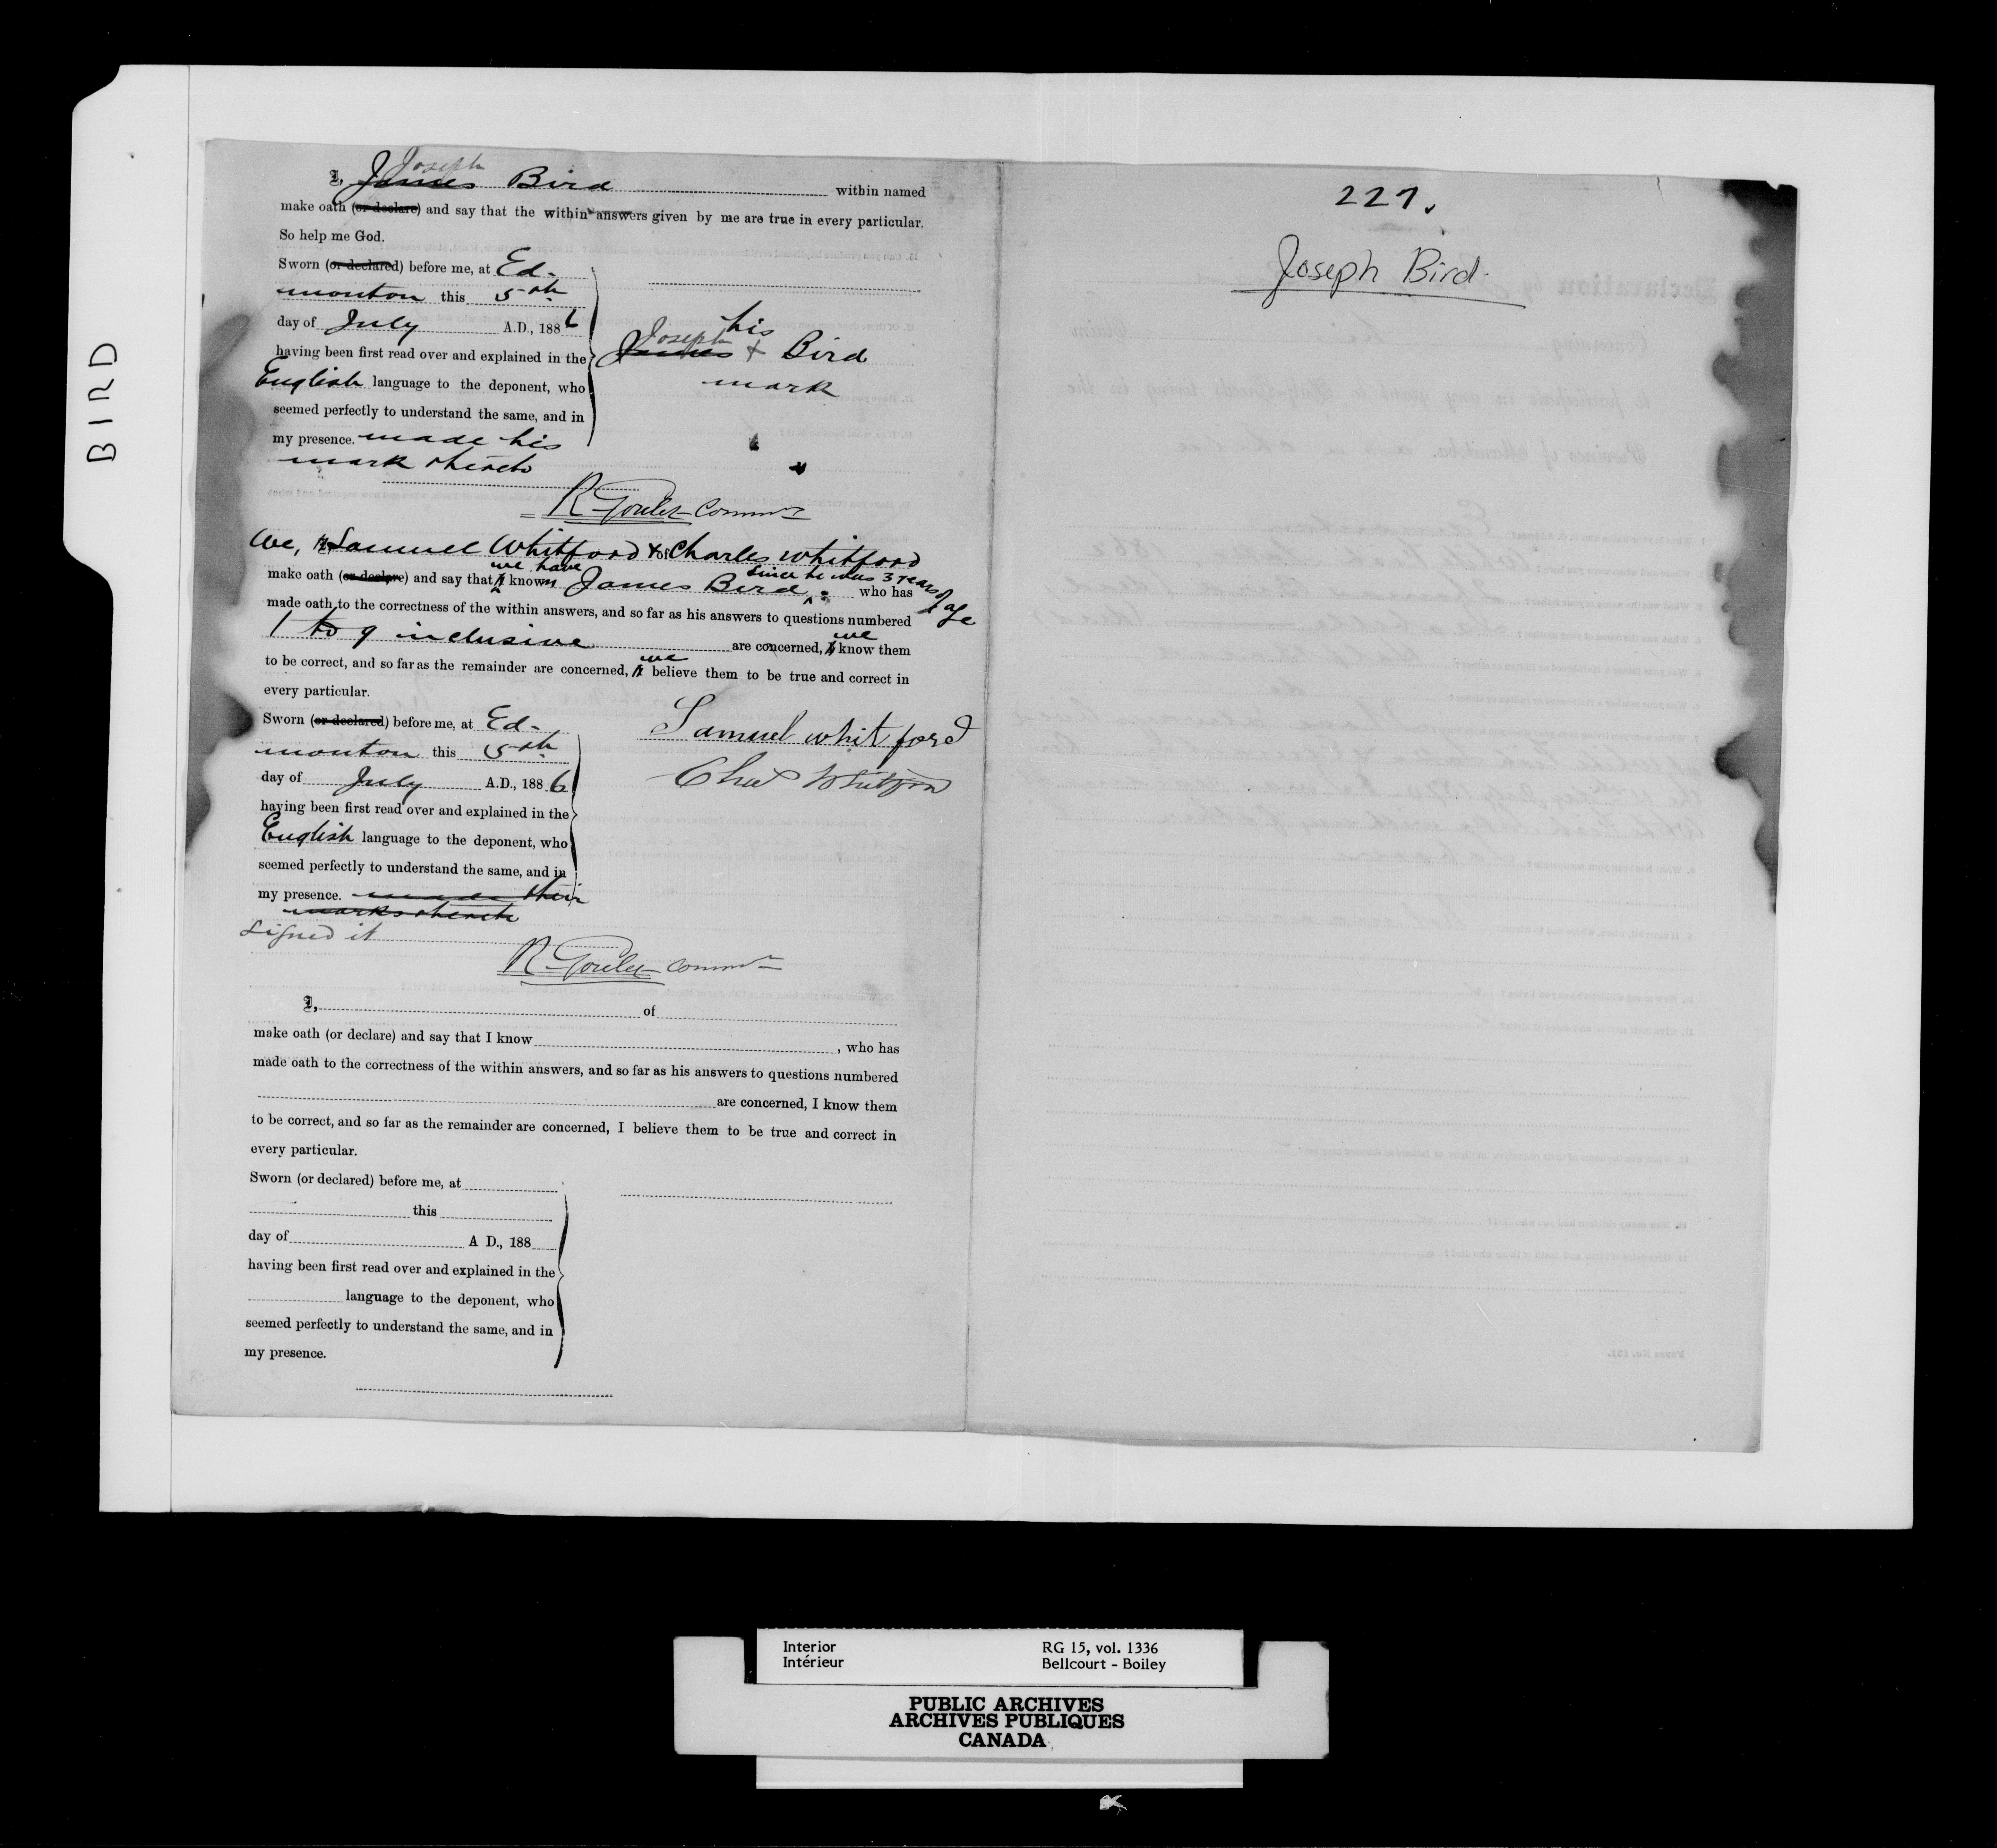 BIRD
Joseph
I, James Bird within named
make oath (or declare) and say that the within answers given by me are true in every particular.
So help me God.
Sworn (or declared) before me, at Ed-
monton this 5th
day of July A.D., 1886
having been first read over and explained in the
English language to the deponent, who
seemed perfectly to understand the same, and in
my presence. made his
mark thereto
his
Joseph
James + Bird
mark
R Goulet Commr
We, Samuel Whitford & of Charles Whitford
we have since he was 3 years of age
make oath (or declare) and say that I known James Bird, who has
made oath to the correctness of the within answers, and so far as his answers to questions numbered
we
1 to 9 inclusive are concerned, I know them
we
to be correct, and so far as the remainder are concerned, I believe them to be true and correct in
every particular.
Sworn (or declared) before me, at Ed-
monton this 5th
day of July A.D., 1886
having been first read over and explained in the
English language to the deponent, who
seemed perfectly to understand the same, and in
my presence. made their
marks thereto
signed it
Samuel whitford
Chas Whitford
R Goulet Commr
I, of
make oath (or declare) and say that I know , who has
made oath to the correctness of the within answers, and so far as his answers to questions numbered
are concerned, I know them
to be correct, and so far as the remainder are concerned, I believe them to be true and correct in
every particular.
Sworn (or declared) before me, at
this
day of A D., 188
having been first read over and explained in the
language to the deponent, who
seemed perfectly to understand the same, and in
my presence.
227.
Joseph Bird.
Interior
Intérieur
RG 15, vol. 1336
Bellcourt - Boiley
PUBLIC ARCHIVES
ARCHIVES PUBLIQUES
CANADA